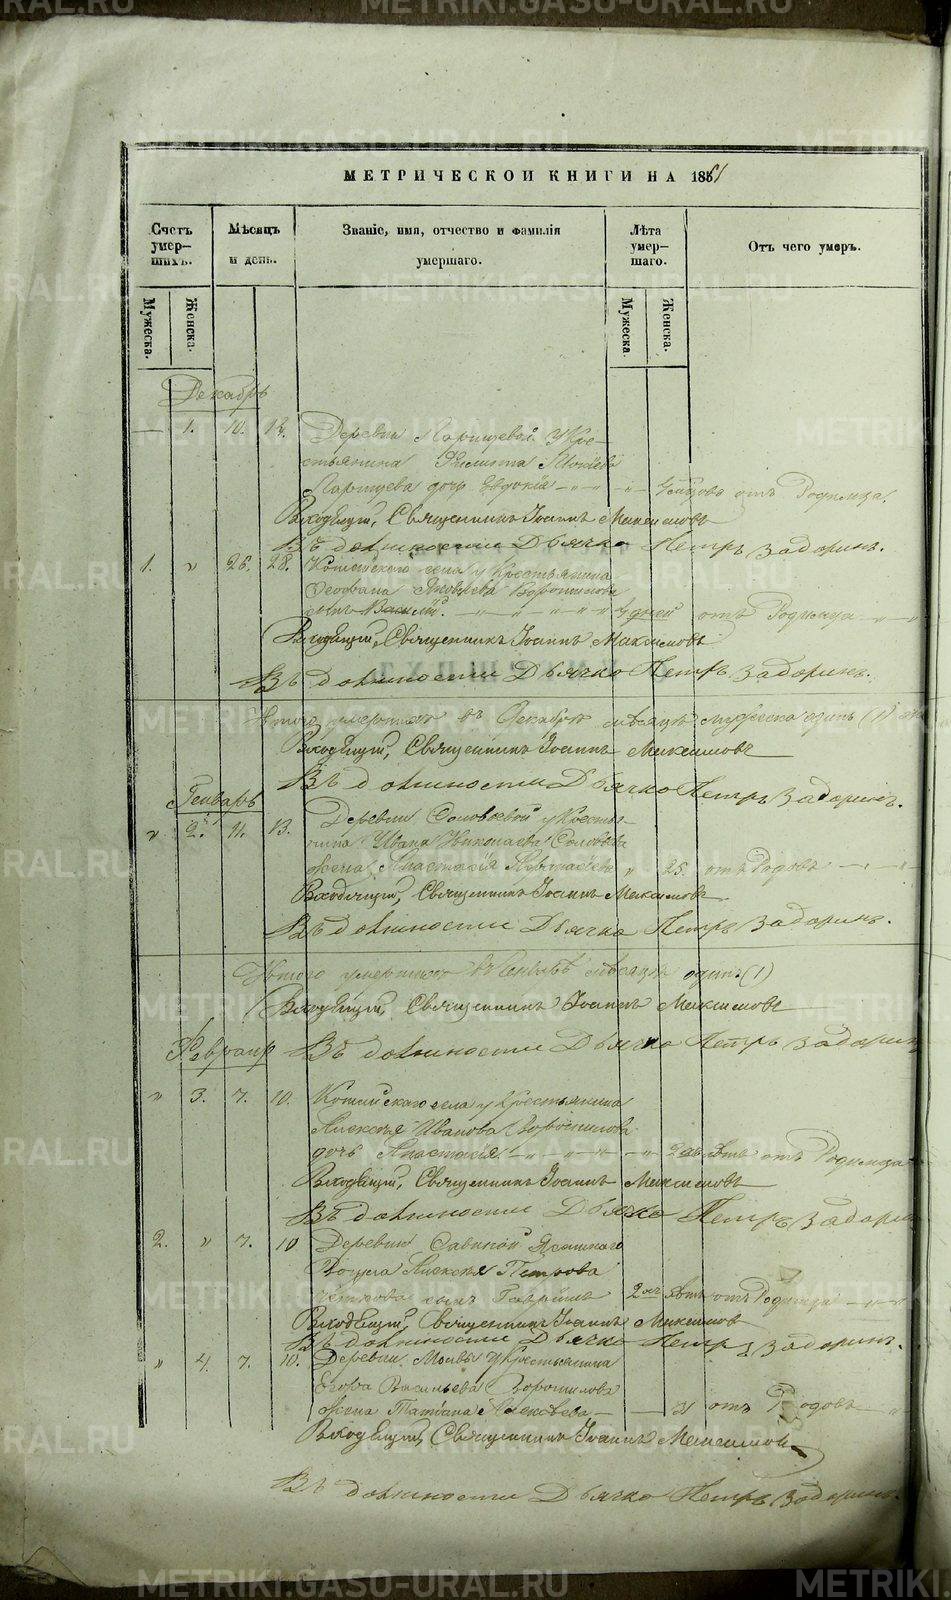 МЕТРИЧЕСКОЙ КНИГИ НА 1851
Счетъ умер-шихъ.
Мужеска.
Женска.
Мѣсяцъ и день.
Званіе, имя, отчество и фамилія умершаго.
Лѣта умер-шаго.
Мужеска.
Женска.
Отъ чего умеръ.
Декабрь
— 1. 10. 12. Деревни Ларищевой у Кре-
стьянина Филипа
Ларищева дочь Евдокія отъ Родимца.
Входящій, Священникъ Іоаннъ Максимовъ
Въ должности Дьячка Петръ Задоринъ.
1. " 26. 28. села у Крестьянина
Яковлева Ворошилова
сынъ дней отъ Родимца
Входящій, Священникъ Іоаннъ Максимовъ
Въ должности Дьячка Петръ Задоринъ.
Итого умершихъ въ Декабрѣ мѣсяцѣ мужеска одинъ (1)
Входящій, Священникъ Іоаннъ Максимовъ
Въ должности Дьячка Петръ Задоринъ.
Генварь
" 2. 11. 13. Деревни Соловьевой у Кресть-
нина Ивана Николаева
жена Анастасія " 25. отъ Родовъ
Входящій, Священникъ Іоаннъ Максимовъ
Въ должности Дьячка Петръ Задоринъ.
Итого умершихъ въ мѣсяцѣ одинъ (1)
Входящій, Священникъ Іоаннъ Максимовъ
Въ должности Дьячка Петръ Задоринъ
Февраль
" 3. 7. 10. села у Крестьянина
Алексѣя Иванова Ворошилова
дочь Анастасія отъ Родимца
Входящій, Священникъ Іоаннъ Максимовъ
Въ должности Дьячка Петръ Задоринъ
2. " 7. 10 Деревни Савиной
Алексѣя Петрова
сынъ Гавріилъ 2хъ лѣтъ отъ Родимца
Входящій, Священникъ Іоаннъ Максимовъ
Въ должности Дьячка Петръ Задоринъ.
" 4. 7. 10. Деревни у Крестьянина
Егора Васильева Ворошилова
жена Татіана отъ Родовъ
Входящій, Священникъ Іоаннъ Максимовъ
Въ должности Дьячка Петръ Задоринъ.
METRIKI.GASO-URAL.RU